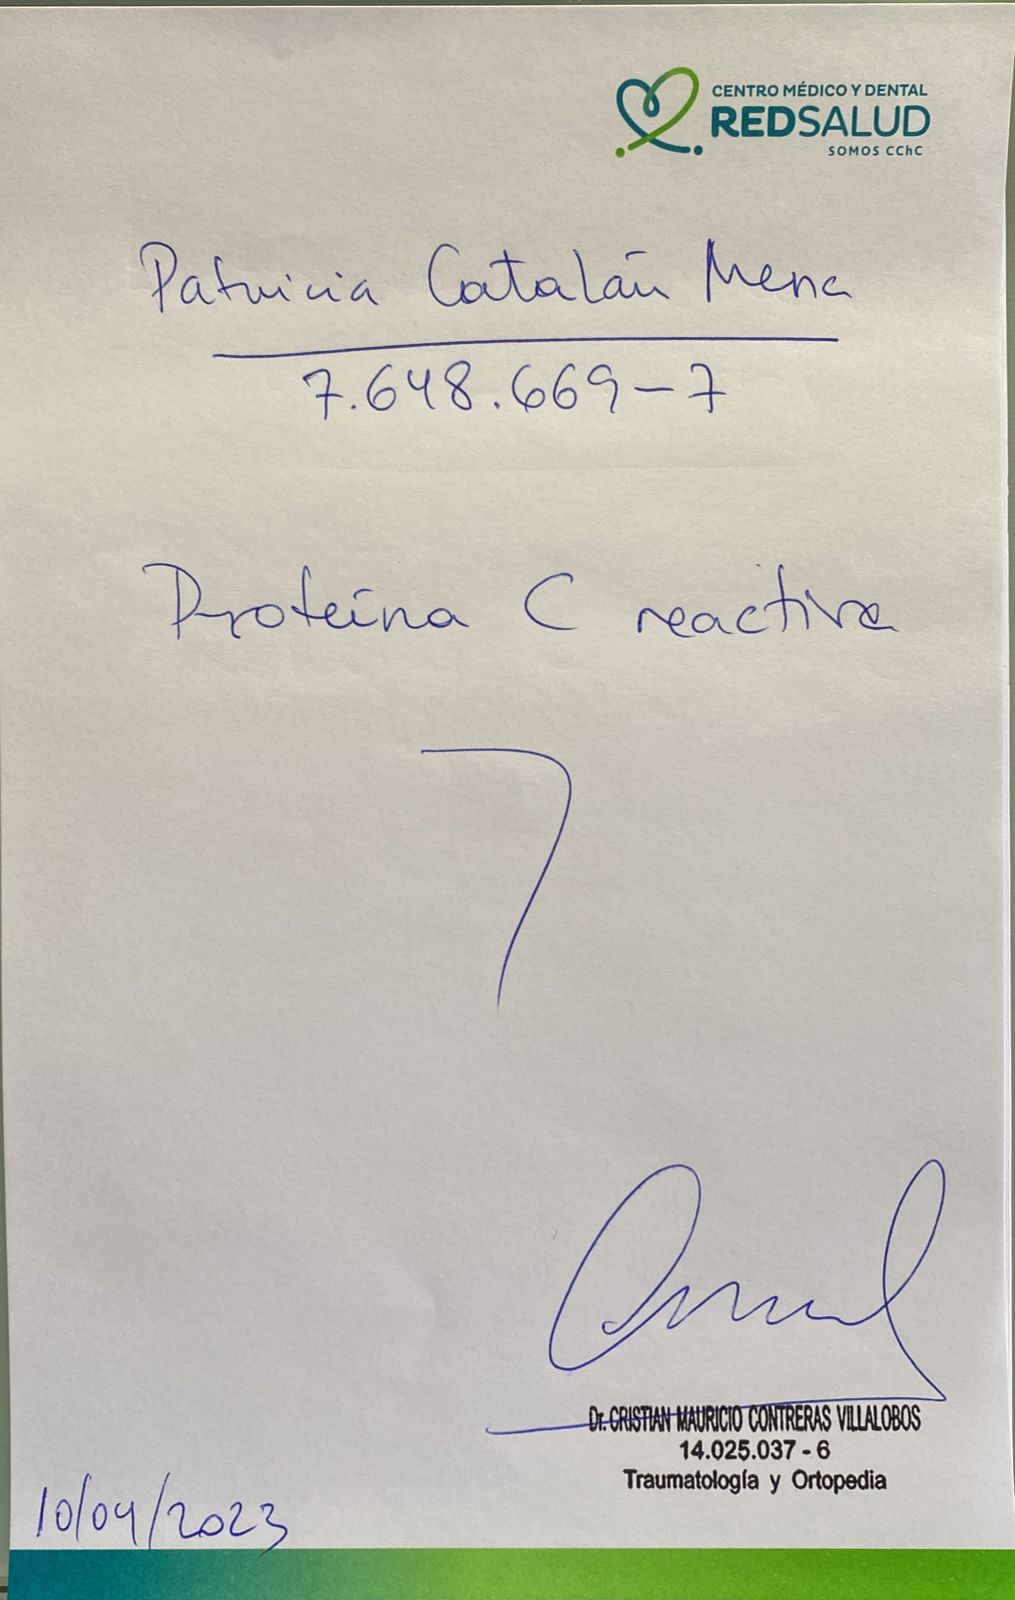 CENTRO MÉDICO Y DENTAL
REDSALUD
SOMOS CChC
Patricia Catalán Mena
7.648.669-7
Proteína C reactiva
Dr. CRISTIAN MAURICIO CONTRERAS VILLALOBOS
14.025.037 - 6
Traumatología y Ortopedia
10/04/2023